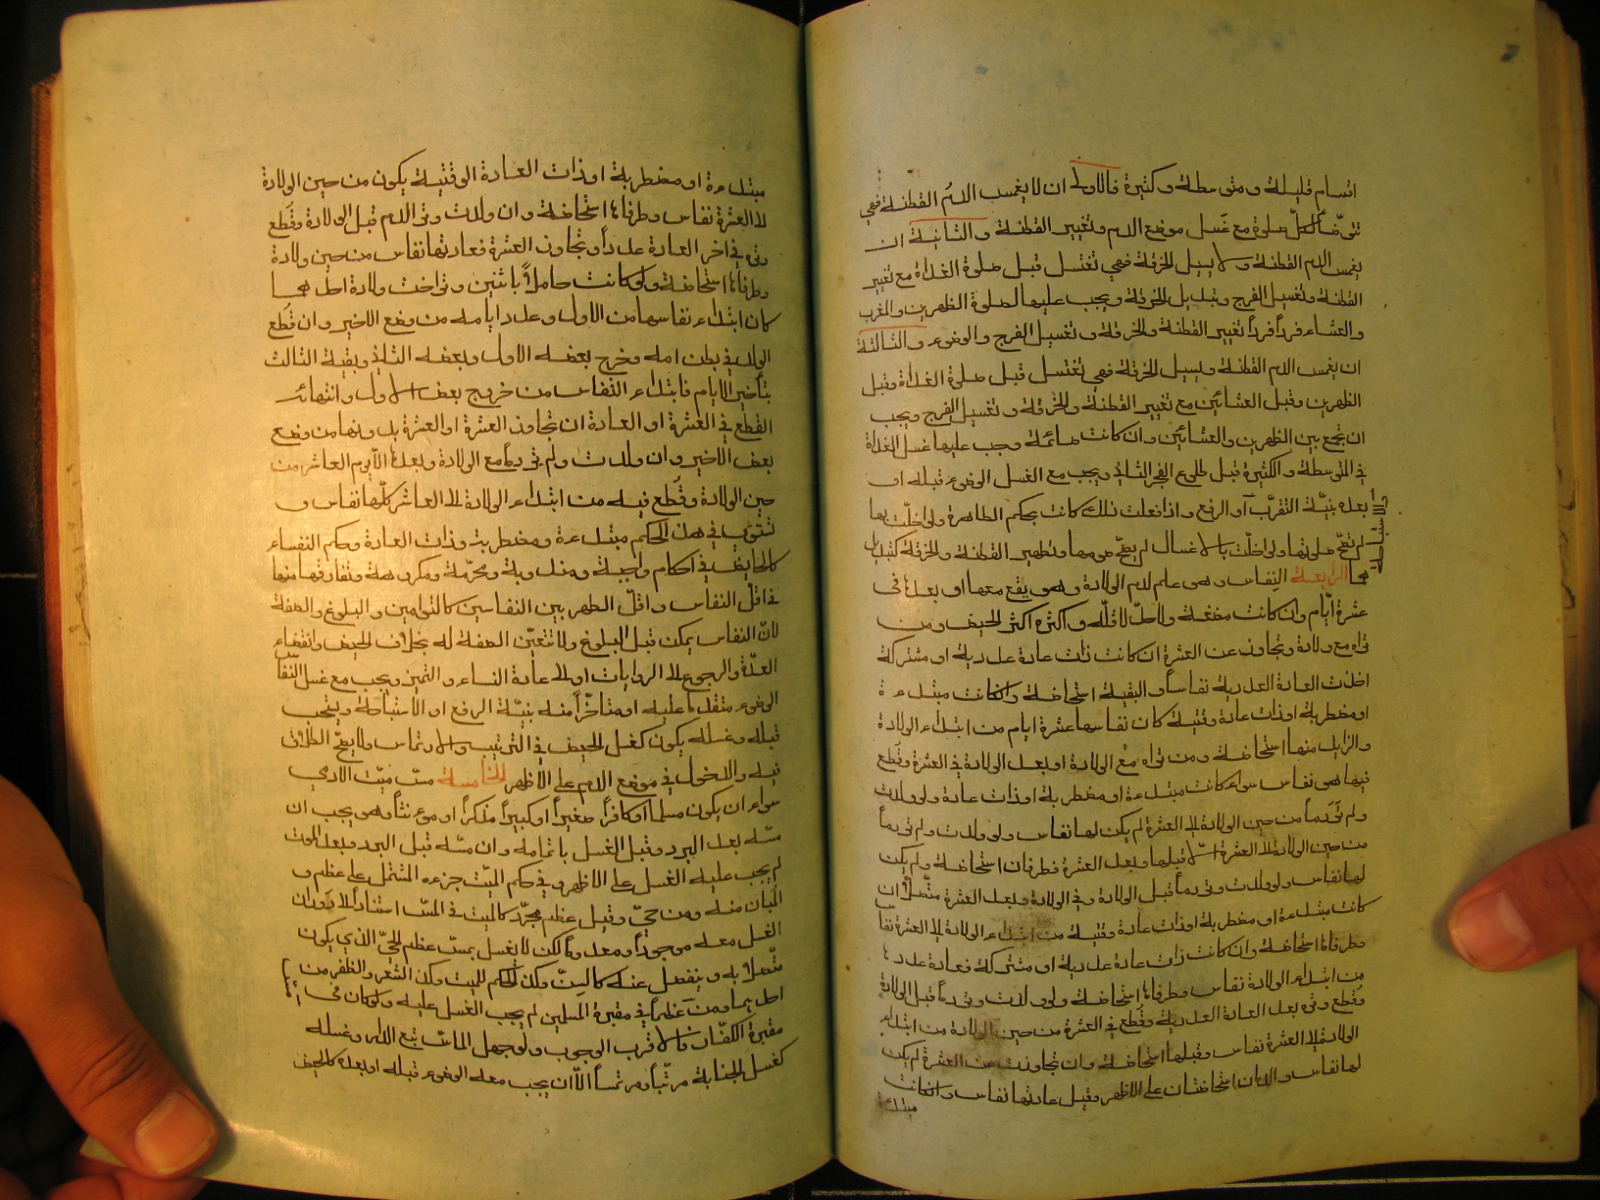 اقسام قليلة و متوسطة و كثيرة فالاولى ان لا يغمس الدم القطنة فهي
تتوضأ لكل صلوة مع غسل موضع الدم و تغيير القطنة و الثانية ان
يغمس الدم القطنة و لا يسيل للخرقة فهي تغتسل قبل صلوة الغداة مع تغيير
القطنة و تغسيل الفرج و تبديل الخرقة و يجب عليها لصلوة الظهرين و المغرب
و العشاء فرداً فرداً تغيير القطنة و الخرقة و تغسيل الفرج و الوضوء و الثالثة
ان يغمس الدم القطنة و يسيل للخرقة فهي تغتسل قبل صلوة الغداة و قبل
الظهرين و قبل العشائين مع تغيير القطنة و الخرقة و تغسيل الفرج و يجب
ان تجمع بين الظهرين و العشائين و ان كانت صائمة وجب عليها غسل الغداة
في المتوسطة و الكثيرة قبل طلوع الفجر الثاني و يجب مع الغسل الوضوء قبله او
بعده بنيّة التقرّب او الرفع و اذا فعلت ذلك كانت بحكم الطاهرة ولو اخلّت بها
لم تصحّ صلوتها ولو اخلّت بالاغسال لم يصحّ صومها و تطهير القطنة و الخرقة كتبديل
هما الرابعة النفاس و هى علم لدم الولادة و هو يقع معها او بعدها فى
عشرة ايّام و ان كانت مضغة و لا حدّ لاقلّه و اكثره اكثر الحيض و من
تراه مع ولادة و تجاوز عن العشرة ان كانت ذات عادة عددية او مشتركة
اخذت العادة العددية نفاساً و البقية استحاضة و ان كانت مبتدءة
او مضطربة او ذات عادة وقتية كان نفاسها عشرة ايام من ابتداء الولادة
و الزايد منها استحاضة و من تراه مع الولادة او بعد الولادة في العشرة و قطع
فيها هى نفاس سواء كانت مبتدءة او مضطربة او ذات عادة ولو ولدت
و لم تر دماً من حين الولادة الى العشرة لم يكن لها نفاس ولو ولدت و لم تر دماً
من حين الولادة الى العشرة قبلها و بعد العشرة فطرفان استحاضة و لم يكن
لها نفاس ولو ولدت و ترى دماً قبل الولادة و في الولادة و بعد العشرة متّصلاً ان
كانت مبتدءة او مضطربة او ذات عادة وقتية من ابتداء الولادة الى العشرة نفاس
و طرفاها استحاضة و ان كانت ذات عادة عددية او مشتركة فعادة عددها
من ابتداء الولادة نفاس و طرفاها استحاضة ولو ولدت و ترى دماً قبل الولادة
و قطع و ترى بعد العادة العددية و قطع في العشرة من حين الولادة من ابتداء
الولادة الى العشرة نفاس و قبلها استحاضة و ان تجاوزت من العشرة لم يكن
لها نفاس و الدمان استحاضتان على الاظهر و قيل عادتها نفاس و ان كانت
مبتدءة
مبتدءة او مضطربة او ذات العادة الوقتية يكون من حين الولادة
الى العشرة نفاس و طرفاها استحاضة و ان ولدت و ترى الدم قبل الولادة و قطع
و ترى في اخر العادة عدداً و تجاوز العشرة فعادتها نفاس من حين ولادة
و طرفاها استحاضة ولو كانت حاملاً باثنين و تراخت ولادة احدهما
كان ابتداء نفاسها من الاول و عدد ايامه من وضع الاخير و ان قطع
الولد في بطن امه و خرج بعضه الاول و بعضه الثاني و بقية الثالث
بتأخير الايام فابتداء النفاس من خروج بعض الاول و انتهائه
القطع في العشرة او العادة ان تجاوز العشرة او العشرة بدونها من وضع
بعض الاخير و ان ولدت و لم تر دماً مع الولادة و بعدها الّا يوم العاشر من
حين الولادة و قطع فيه من ابتداء الولادة الى العاشر كلّها نفاس و
تستوى في هذه الحكم مبتدءة و مضطربة و ذات العادة و حكم النفساء
كالحايض في احكام واجبة و مندوبة و محرّمة و مكروهة و تفارقها منها
في اقلّ النفاس و اقلّ الطهر بين النفاسين كالتوامين و البلوغ و الصفة
لانّ النفاس يمكن قبل البلوغ و لا تتعيّن الصفة له بخلاف الحيض و انقضاء
العدّة و الرجوع الى الروايات او الى عادة النساء و التميز و يجب مع غسل النّفاس
الوضوء متقدماً عليه او متأخّراً منه بنيّة الرفع او الاستباحة و يستحب
قبله و غسله يكون كغسل الحيض في الترتيب و الارتماس و لا يصحّ الطلاق
فيه و الدخول في موضع الدم على الاظهر الخامسة مسّ ميّت الادمي
سواء ان يكون مسلما او كافراً صغيراً او كبيراً مذكراً او مؤنثاً و هو يجب ان
مسّه بعد البرد و قبل الغسل باتمامه و ان مسّه قبل البرد و بعد الموت
لم يجب عليه الغسل على الاظهر و في حكم الميّت جزءه المشتمل على عظم و
المبان منه و من حيّ و قيل عظم مجرّد كالميت في المسّ استناداً الى دوران
الغسل معه موجوداً و معدوماً لكن لا غسل بمسّ عظم الحيّ الذي يكون
متّصلاً به و ينفصل عنه كالسنّ و لكن الحكم للميت و لكن الشعر و الظفر من
احديهما و من عظماً في مقبرة المسلمين لم يجب الغسل عليه ولو كان في
مقبرة الكفّار فالاقرب الوجوب ولو جهل الماسّ تبع الدار و غسله
كغسل الجنابة مرتّباً و مرتمساً الّا ان يجب معه الوضوء قبله او بعده كالحيض